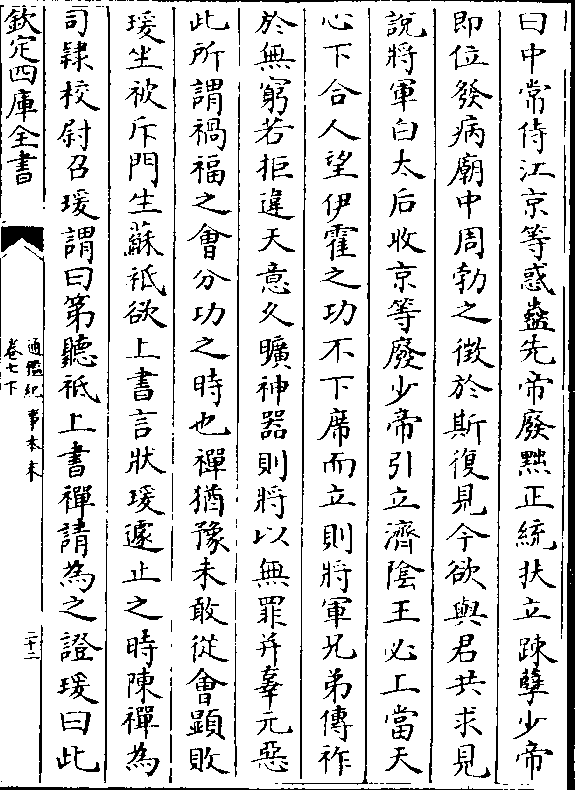 曰中常侍江京等惑蠱先帝廢黜正統扶立疎孽少帝
即位發病廟中周勃之徴於斯復見今欲與君共求見
説將軍白太后收京等廢少帝引立濟隂王必上當天
心下合人望伊霍之功不下席而立則將軍兄弟傳祚
於無窮若拒違天意久曠神器則將以無罪并辜元惡
此所謂禍福之㑹分功之時也禪猶豫未敢從㑹顯敗
瑗坐被斥門生蘇祗欲上書言狀瑗遽止之時陳禪為
司隷校尉召瑗謂曰第聽祗上書禪請為之證瑗曰此
欽定四庫全書
通鑑紀事本末
卷七下
二十二